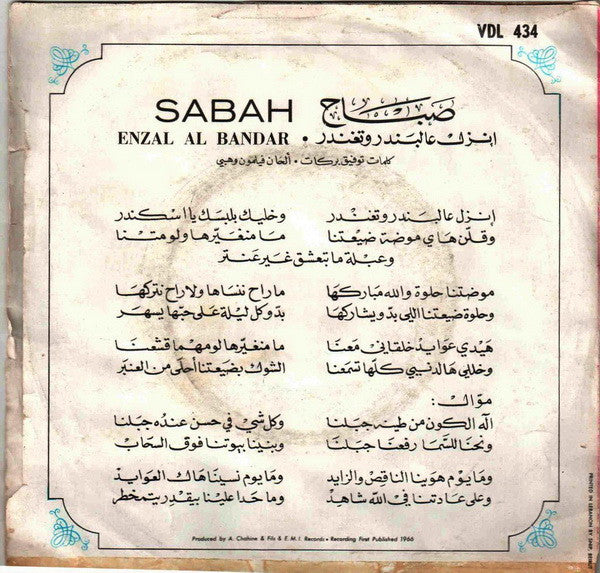 VDL 434
SABAH صباح
ENZAL AL BANDAR • إنزل عالبندر وتغندر
كلمات توفيق بركات • ألحان فيلمون وهبي
إنزل عالبندر وتغندر وخليك بلبسك يا اسكندر
وقلن هاي موضة ضيعتنا ما منغيرها ولو متنا
وعبلة ما بتعشق غير عنتر
موضتنا حلوة والله مباركها ما راح ننساها ولا راح نتركها
وحلوة ضيعتنا اللي بدو يشاركها بدو كل ليلة على حبها يسهر
هيدي عوايد خلقاني معنا ما منغيرها لو مهما قشعنا
وخلي هالدنيي كلها تسمعنا الشوك بضيعتنا أحلى من العنبر
موال :
اله الكون من طينه جبلنا وكل شي في حسن عنده جبلنا
ونحنا للسما رفعنا جبلنا وبنينا بيوتنا فوق السحاب
وما يوم هوينا الناقص والزايد وما يوم نسينا هاك العوايد
وعلى عادتنا في الله شاهد وما حدا علينا بيقدر يتمخطر
Produced by A. Chahine & Fils & E.M.I. Records • Recording First Published 1966
PRINTED IN LEBANON BY